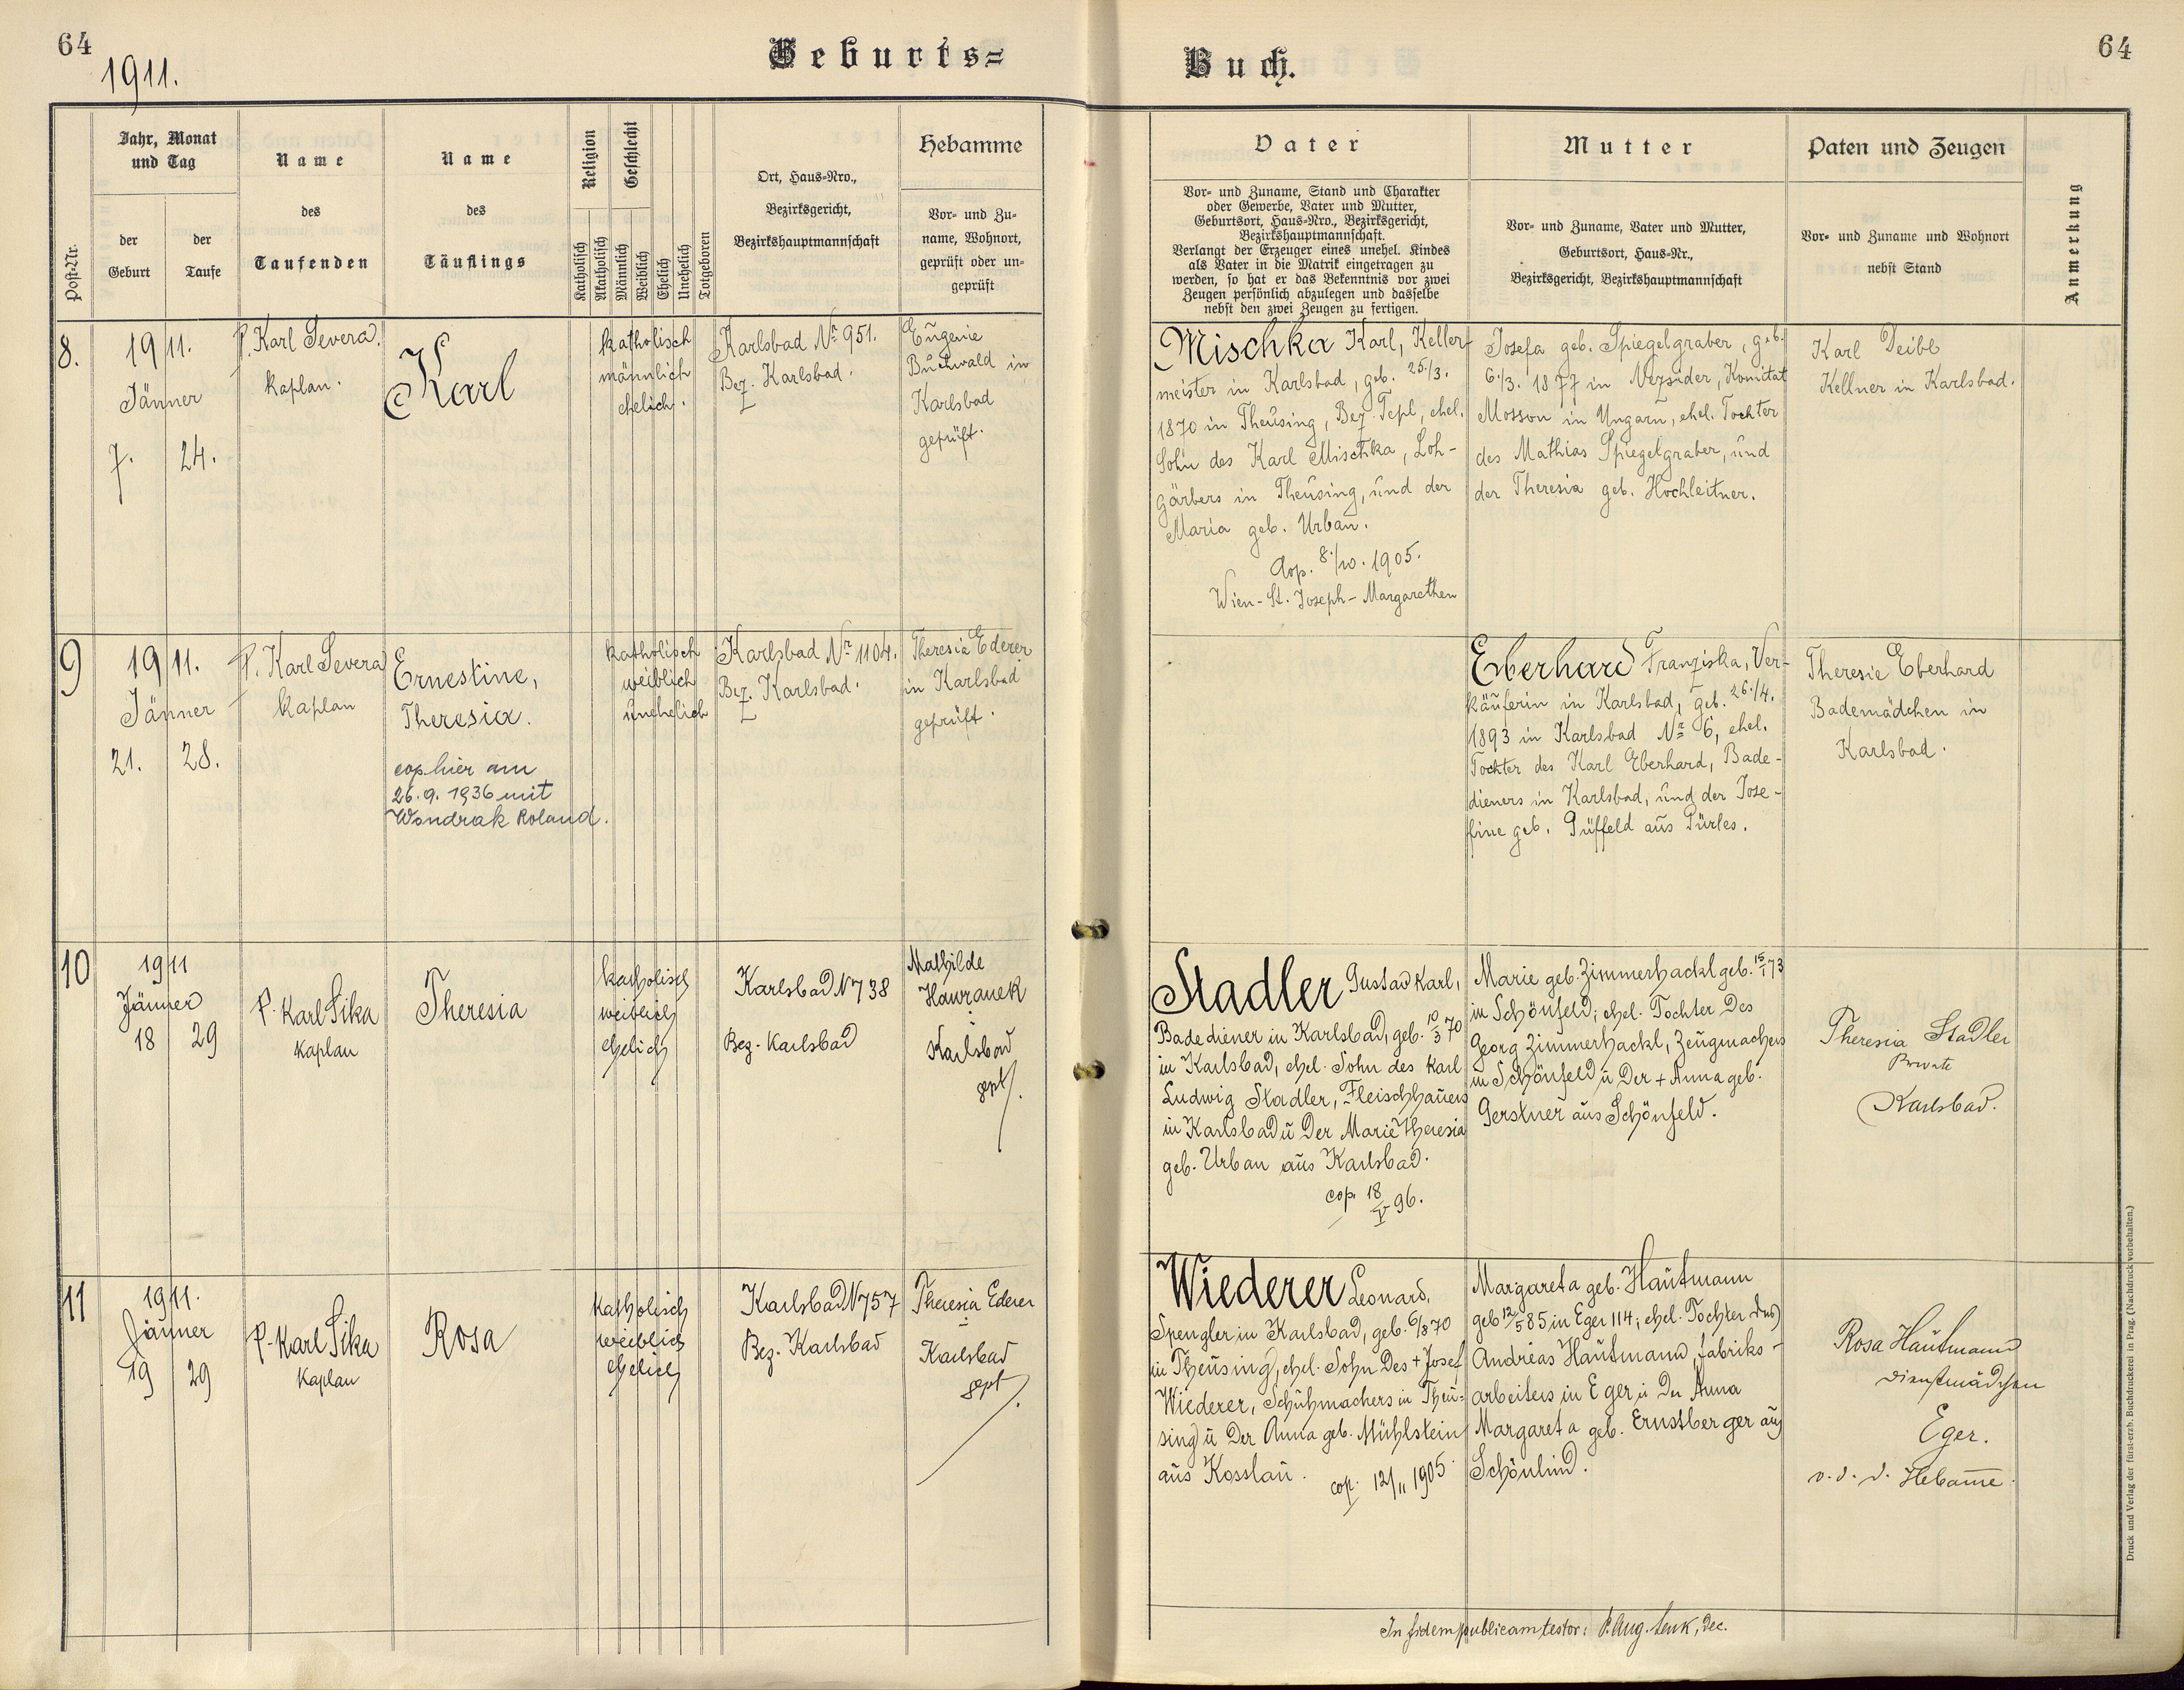 64
1911.
Geburts=
Buch.
64
Post-Nr.
Jahr, Monat
und Tag
der
Geburt
der
Taufe
Name
des
Taufenden
Name
des
Täuflings
Religion
Katholisch
Akatholisch
Geschlecht
Männlich
Weiblich
Ehelich
Unehelich
Totgeboren
Ort, Haus=Nro.,
Bezirksgericht,
Bezirkshauptmannschaft
Hebamme
Vor= und Zu=
name, Wohnort,
geprüft oder un=
geprüft
Vater
Vor= und Zuname, Stand und Charakter
oder Gewerbe, Vater und Mutter,
Geburtsort, Haus=Nro., Bezirksgericht,
Bezirkshauptmannschaft.
Verlangt der Erzeuger eines unehel. Kindes
als Vater in die Matrik eingetragen zu
werden, so hat er das Bekenntnis vor zwei
Zeugen persönlich abzulegen und dasselbe
nebst den zwei Zeugen zu fertigen.
Mutter
Vor= und Zuname, Vater und Mutter,
Geburtsort, Haus=Nr.,
Bezirksgericht, Bezirkshauptmannschaft
Paten und Zeugen
Vor= und Zuname und Wohnort
nebst Stand
Anmerkung
8.
1911.
Jänner
7. 24.
P. Karl Severa,
Kaplan.
Karl
katholisch
männlich
ehelich.
Karlsbad Nr 951.
Bez. Karlsbad.
Eugenie
Buchwald in
Karlsbad
geprüft.
Mischka Karl, Keller-
meister in Karlsbad, geb. 25./3.
1870 in Theusing, Bez. Tepl, ehel.
Sohn des Karl Mischka, Loh-
gärbers in Theusing, und der
Maria geb. Urban.
Cop. 8./10. 1905.
Wien-St. Joseph-Margarethen
Josefa geb. Spiegelgraber, geb.
6./3. 1877 in Nezsider, Komitat
Mosson in Ungarn, ehel. Tochter
des Mathias Spiegelgraber, und
der Theresia geb. Hochleitner.
Karl Deibl
Kellner in Karlsbad.
9
1911.
Jänner
21. 28.
P. Karl Severa
Kaplan
Ernestine,
Theresia.
cop. hier am
26.9. 1936 mit
Wondrak Roland.
katholisch
weiblich
unehelich
Karlsbad Nr 1104.
Bez. Karlsbad.
Theresia Ederer
in Karlsbad
geprüft.
Eberhard Franziska, Ver-
käuferin in Karlsbad, geb. 26./4.
1893 in Karlsbad Nr 6, ehel.
Tochter des Karl Eberhard, Bade-
dieners in Karlsbad, und der Jose-
fine geb. Püffeld aus Pürles.
Theresie Eberhard
Bademädchen in
Karlsbad.
10
1911
Jänner
18 29
P. Karl Sika
Kaplan
Theresia
katholisch
weiblich
ehelich
Karlsbad N 738
Bez. Karlsbad
Mathilde
Hawranek
Karlsbad
gept.
Stadler Gustav Karl,
Badediener in Karlsbad, geb. 10/3 70
in Karlsbad, ehel. Sohn des Karl
Ludwig Stadler, Fleischhauers
in Karlsbad u der Marie Theresia
geb. Urban aus Karlsbad.
cop. 18/V 96.
Marie geb. Zimmerhackl geb. 15/1 73
in Schönfeld; ehel. Tochter des
Georg Zimmerhackl, Zeugmachers
in Schönfeld u der + Anna geb.
Gerstner aus Schönfeld.
Theresia Stadler
Private
Karlsbad.
11
1911.
Jänner
19 29
P. Karl Sika
Kaplan
Rosa
katholisch
weiblich
ehelich
Karlsbad N 757
Bez. Karlsbad
Theresia Ederer
Karlsbad
gept.
Wiederer Leonard,
Spengler in Karlsbad, geb. 6/8 70
in Theusing, ehel. Sohn des + Josef
Wiederer, Schuhmachers in Theu-
sing u der Anna geb. Mühlstein
aus Kosslau. cop. 12/11 1905.
Margareta geb. Hautmann
geb 12/5 85 in Eger 114; ehel. Tochter des
Andreas Hautmann, Fabriks-
arbeiters in Eger u der Anna
Margareta geb. Ernstberger aus
Schönlind.
Rosa Hautmann
Dienstmädchen
Eger.
v. d. d. Hebamme.
In fidem publicam testor: P. Aug. Senk, Dec.
Druck und Verlag der fürst-erzb. Buchdruckerei in Prag. (Nachdruck vorbehalten.)